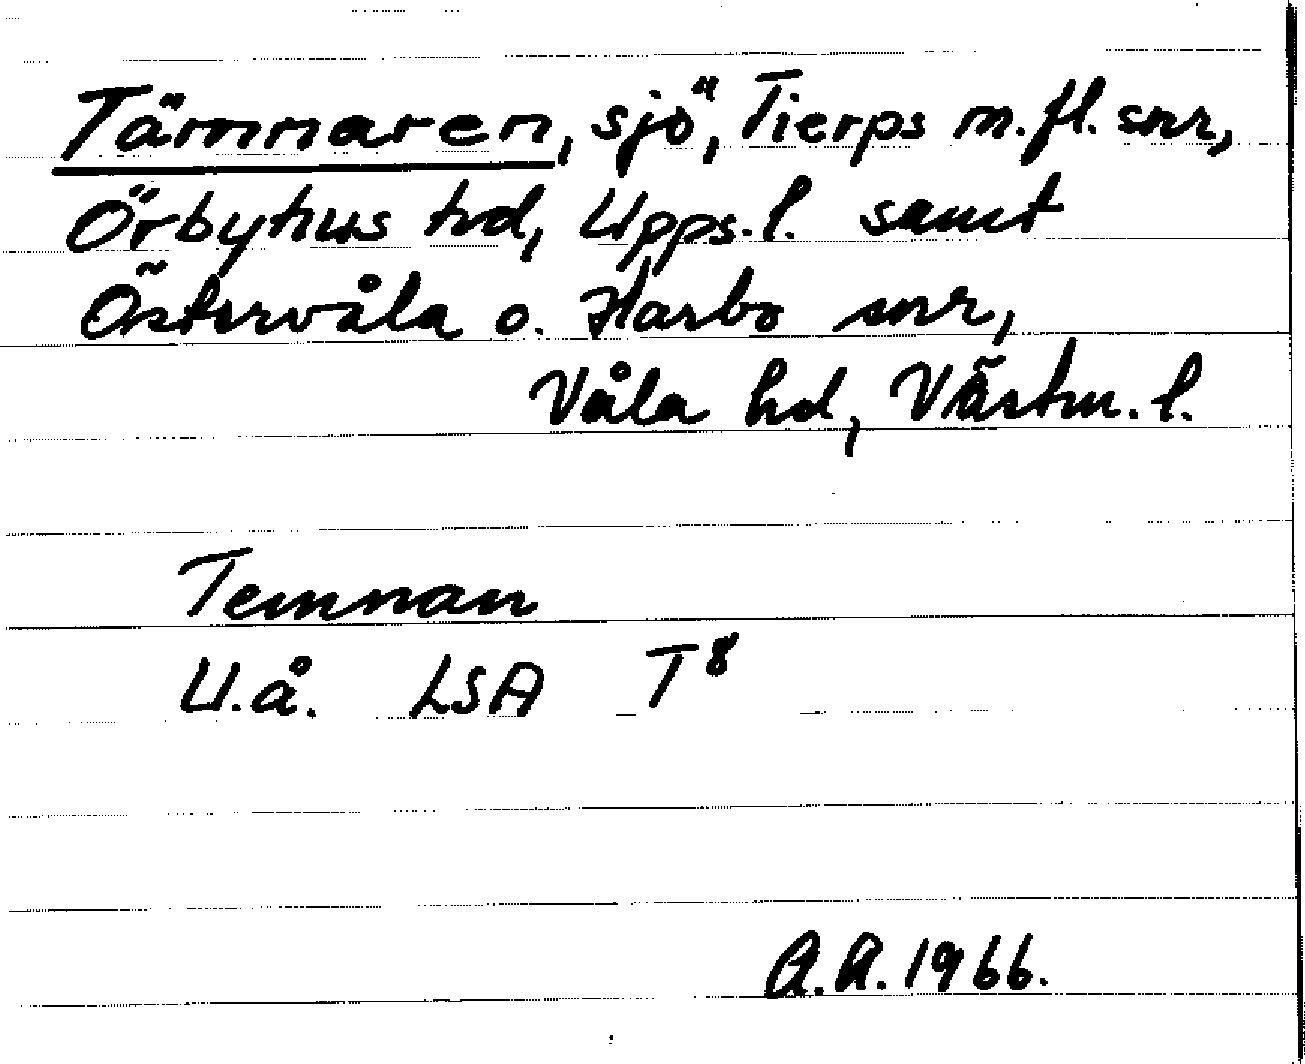 Tämnaren, sjö, Tierps m.fl. snr,
Örbyhus hd, Upps.l. samt
Östervåla o. Harbo snr,
Våla hd, Västm.l.
Temnan
U.å. LSA T8
A.A.1966.